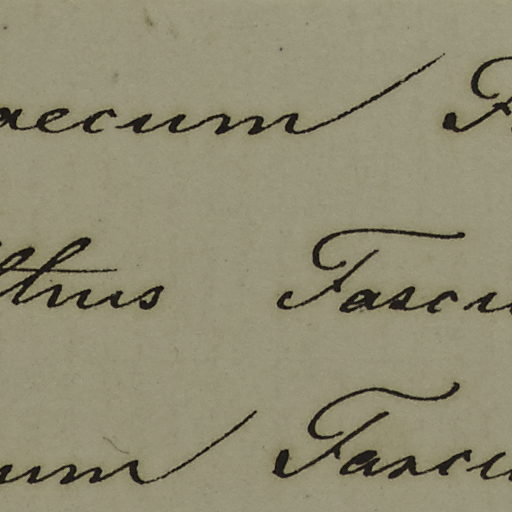 aecum F
ltrus Fascu
um Fascu